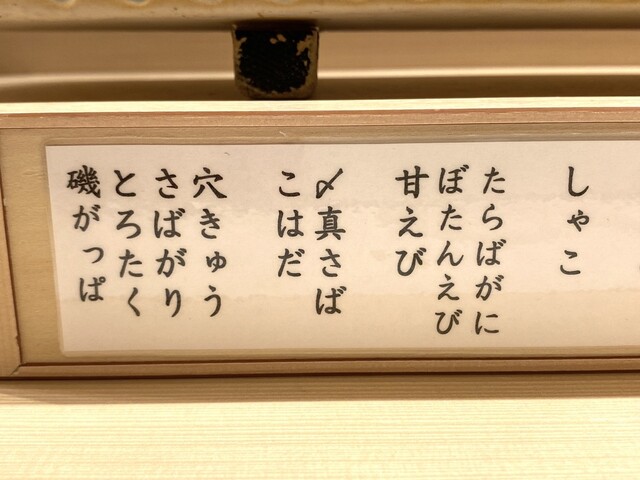 しゃこ
たらばがに
ぼたんえび
甘えび
〆真さば
こはだ
穴きゅう
さばがり
とろたく
磯がっぱ